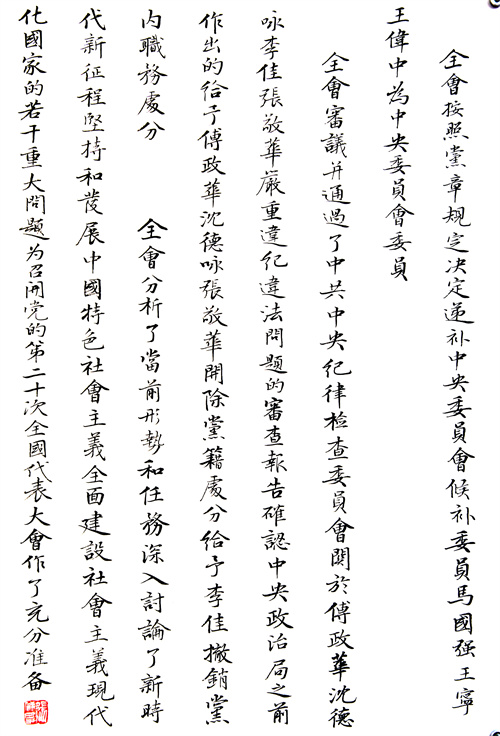 全會按照黨章規定决定递补中央委員會候补委員馬國强王寧
王偉中為中央委員會委員
全會審議并通過了中共中央纪律检查委員會關於傅政華沈德
咏李佳張敬華嚴重違纪違法問題的審查報告確認中央政治局之前
作出的给予傅政華沈德咏張敬華開除黨籍處分给予李佳撤銷黨
内職務處分 全會分析了當前形勢和任務深入討論了新時
代新征程堅持和發展中國特色社會主義全面建設社會主義現代
化國家的若干重大問題为召開党的第二十次全國代表大會作了充分准备